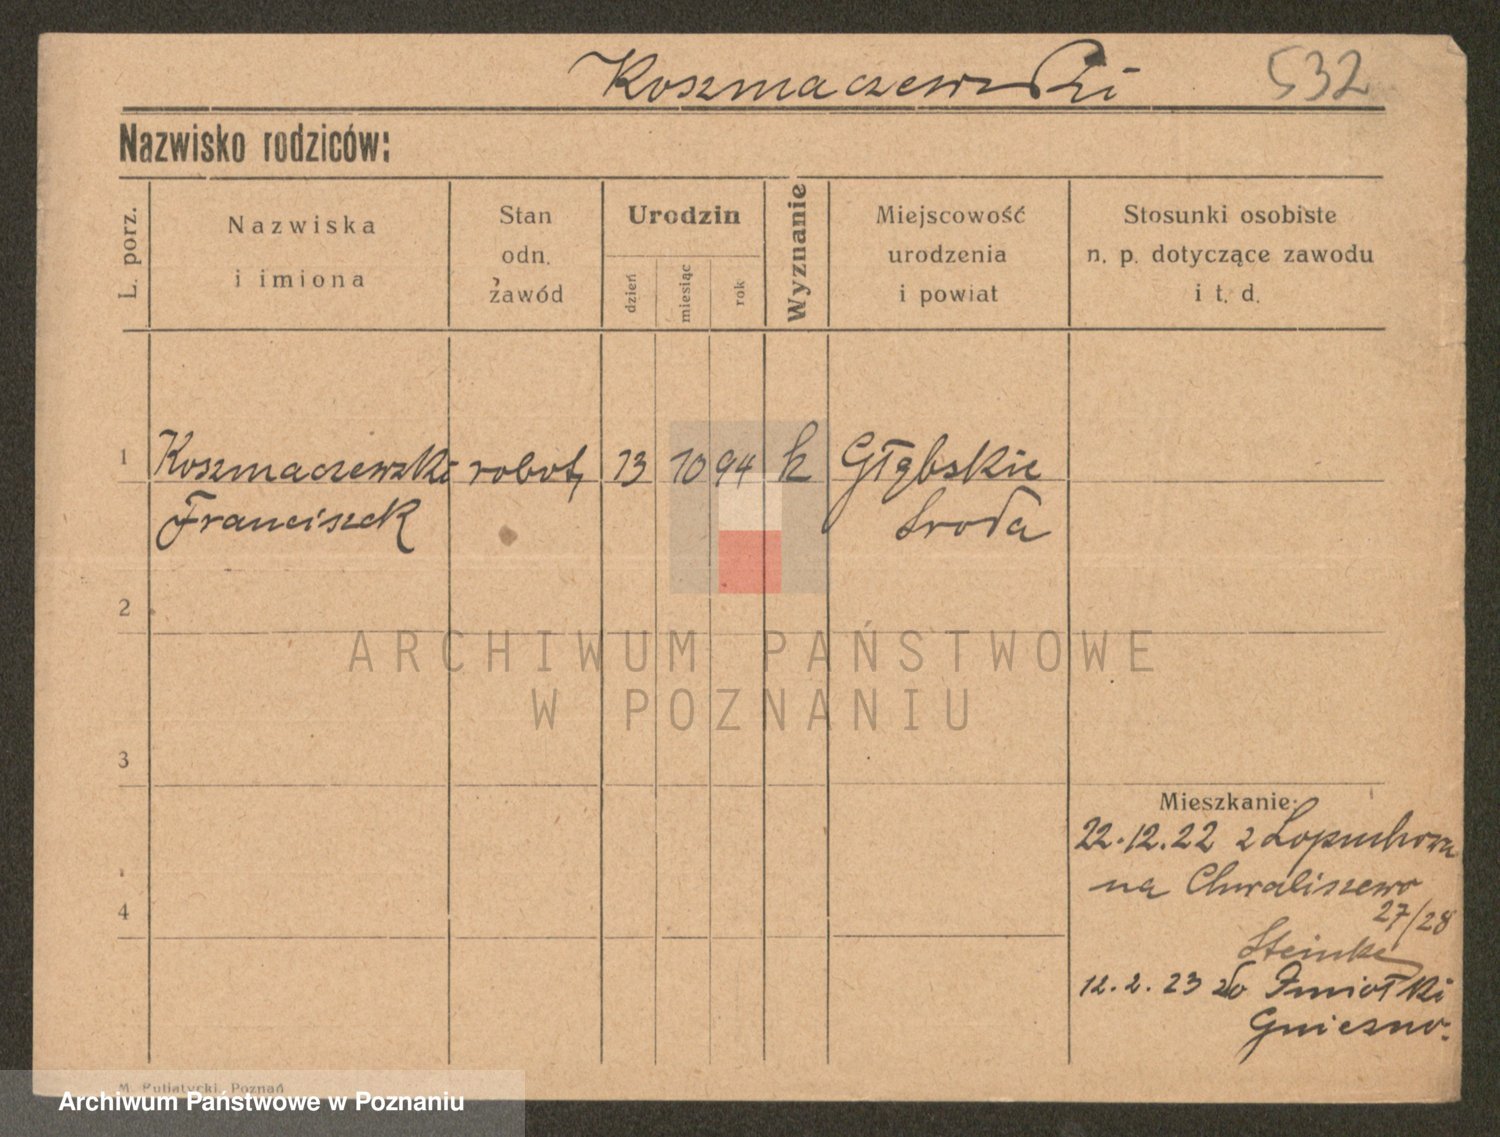 Koszmaczewski 532
Nazwisko rodziców:
L. porz.
Nazwiska
i imiona
Stan
odn.
zawód
Urodzin
dzień
miesiąc
rok
Wyznanie
Miejscowość
urodzenia
i powiat
Stosunki osobiste
n. p. dotyczące zawodu
i t. d.
1 Koszmaczewski robot, 13 10 94 k Głębskie
Franciszek Sroda
2
3
4
Mieszkanie:
22.12.22 z Łopuchowa
na Chwaliszewo
27/28
Steinke
12.2.23 do Imiołki
Gniezno.
M. Putiatycki, Poznań
ARCHIWUM PAŃSTWOWE
W POZNANIU
Archiwum Państwowe w Poznaniu